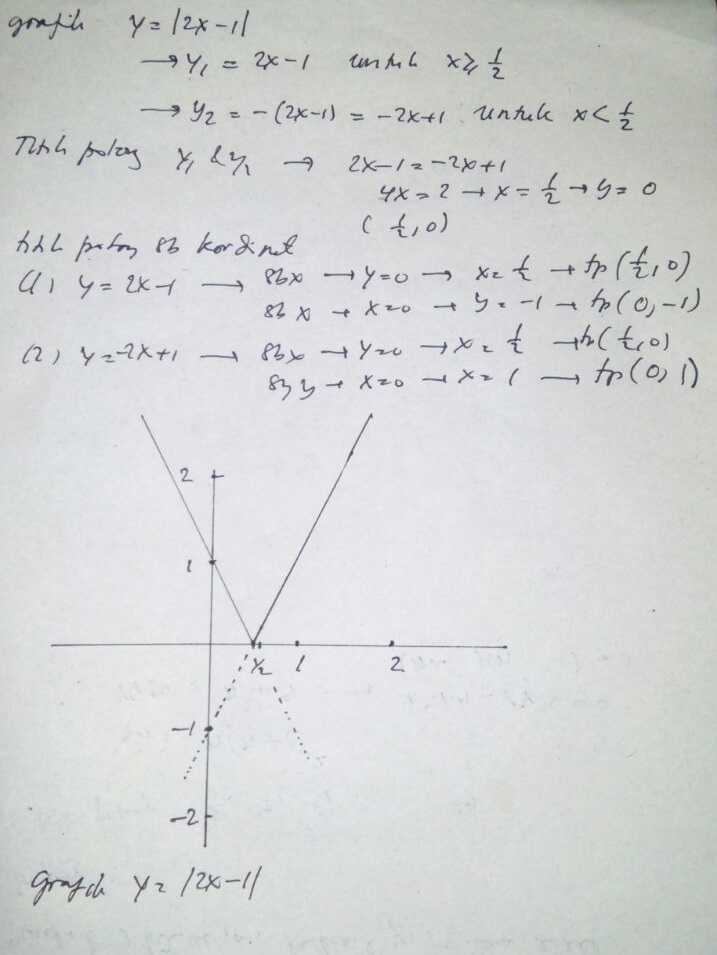 grafik y = |2x-1|
→ y₁ = 2x-1 untuk x ≥ 1/2
→ y₂ = -(2x-1) = -2x+1 untuk x < 1/2
Titik potong y₁ & y₂ → 2x-1 = -2x+1
4x = 2 → x = 1/2 → y = 0
(1/2, 0)
titik potong sb kordinat
(1) y = 2x-1 → sbx → y=0 → x = 1/2 → tp(1/2, 0)
sb x → x=0 → y = -1 → tp(0, -1)
(2) y = -2x+1 → sbx → y=0 → x = 1/2 → tp(1/2, 0)
sb y → x=0 → x = 1 → tp(0, 1)
2
1
1/2 1 2
-1
-2
Grafik y = |2x-1|